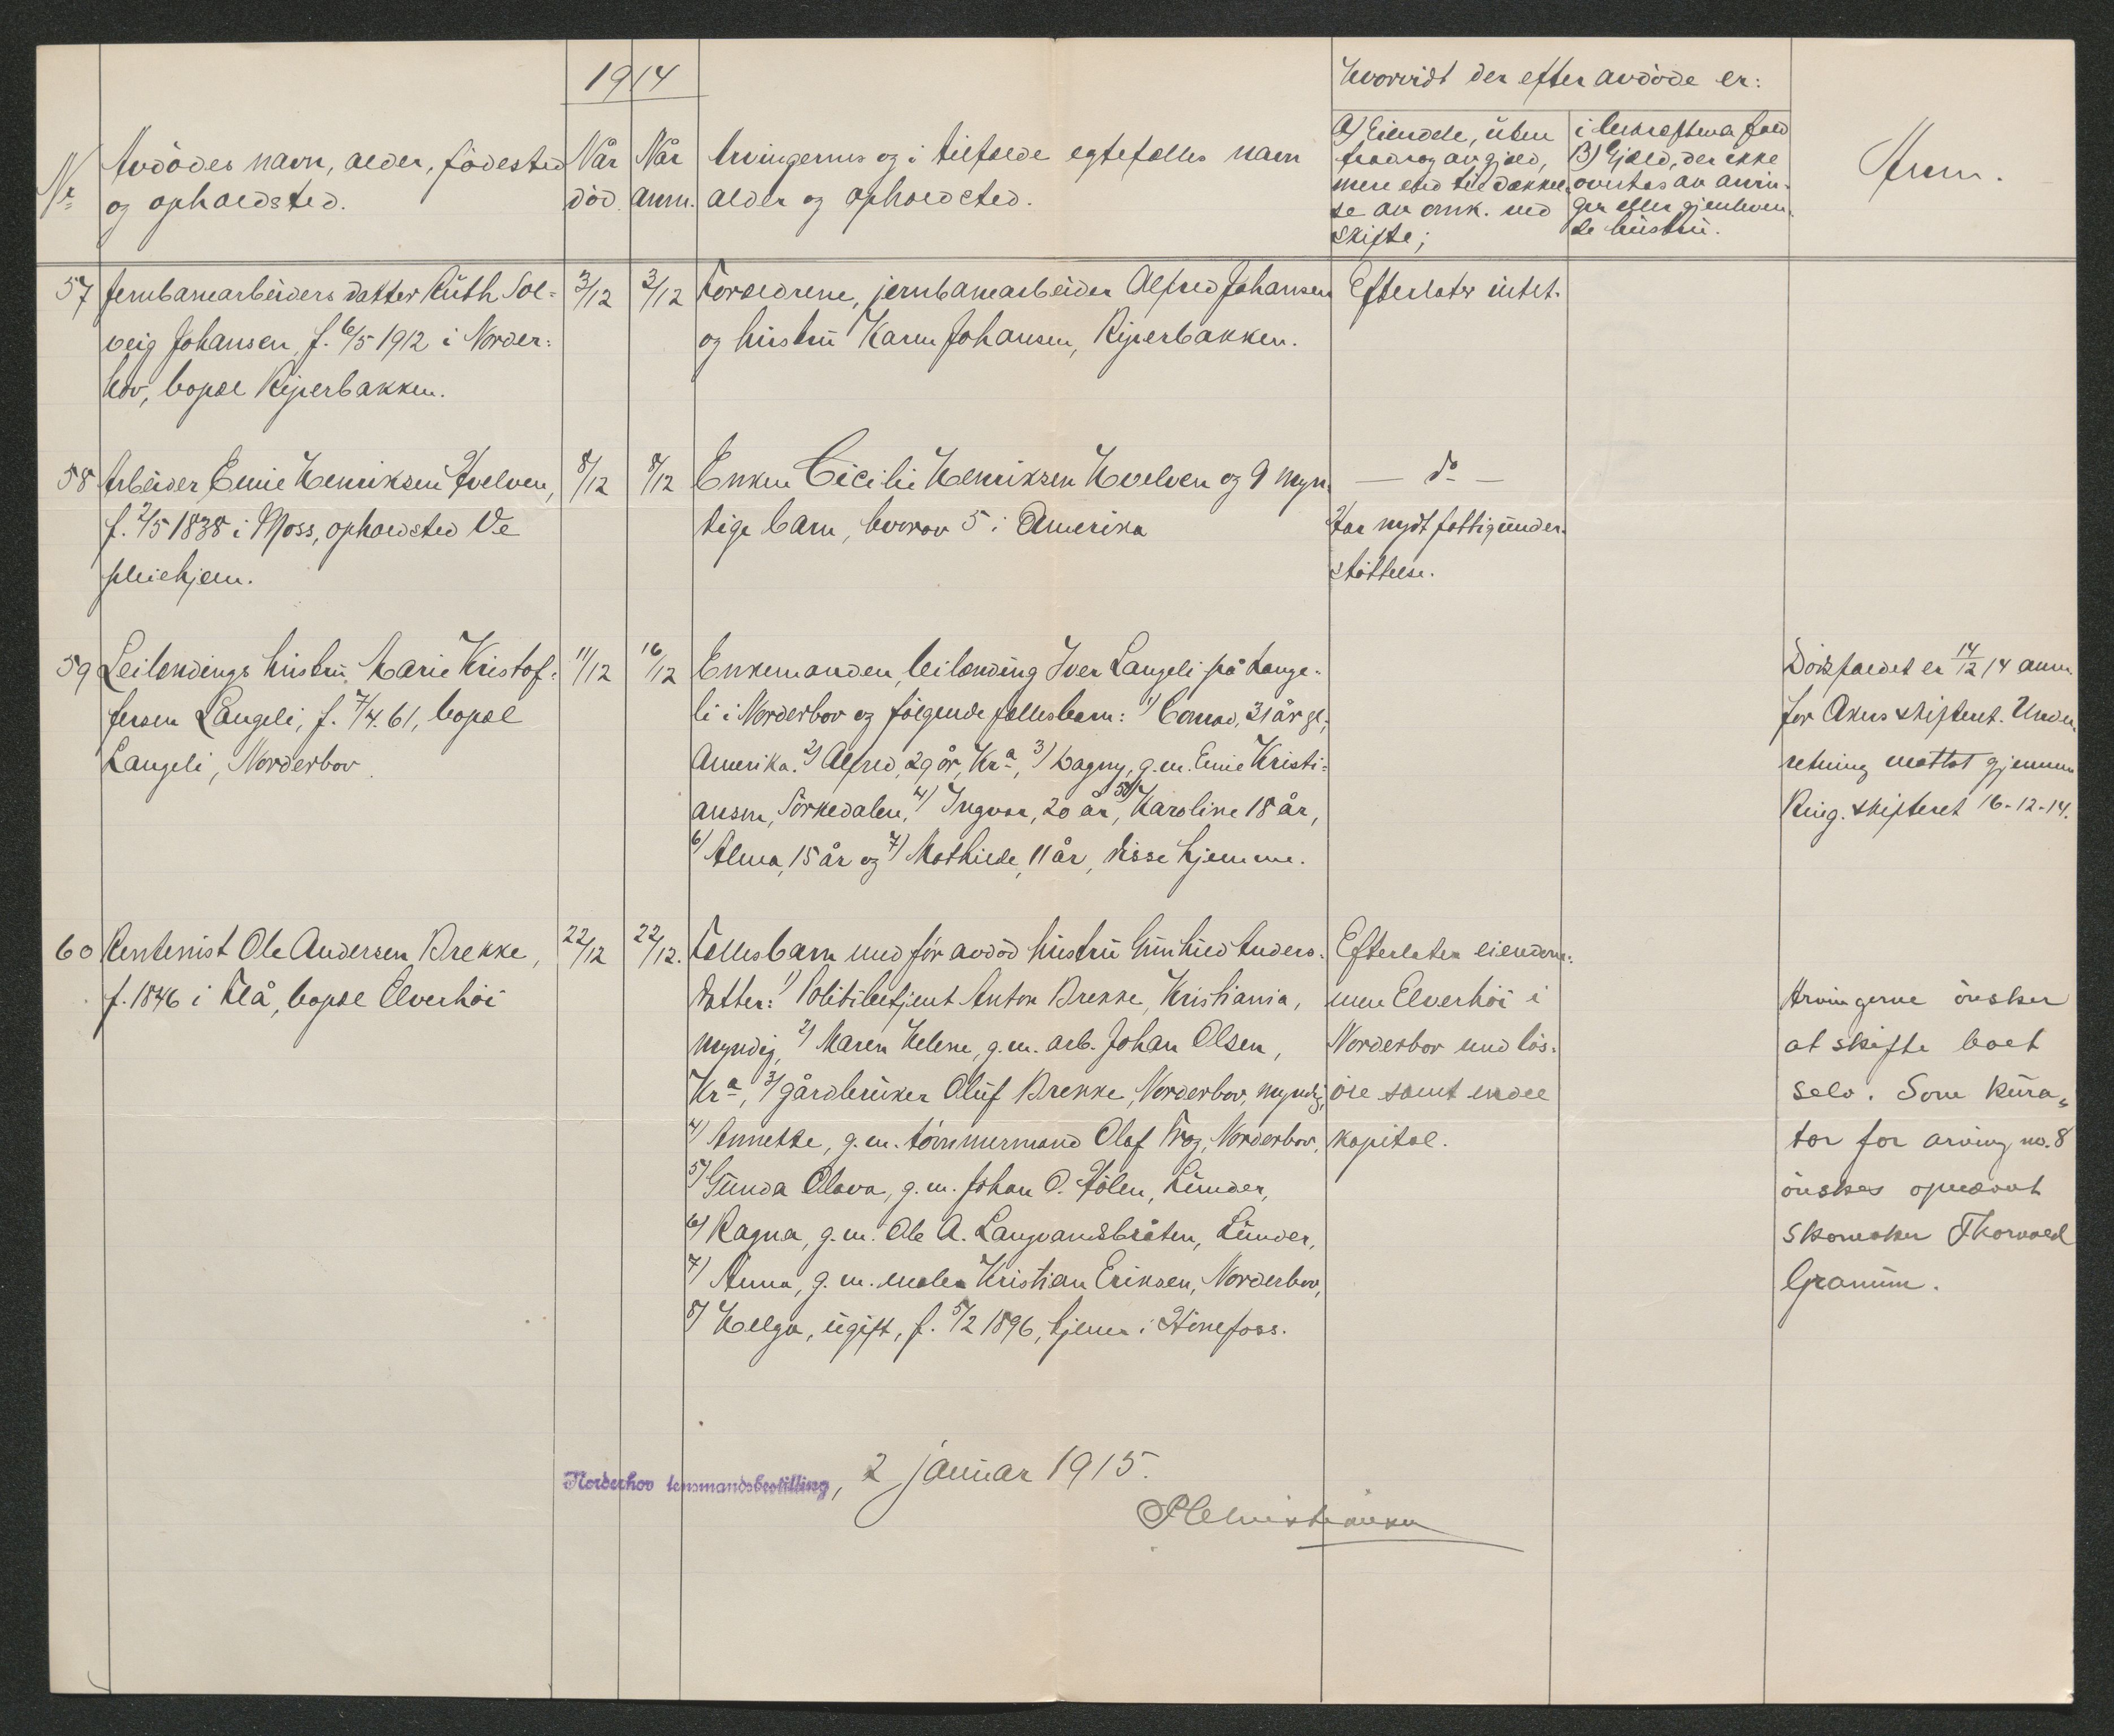 1914
Hvorvidt der efter avdöde er:
Nr
Avdödes navn, alder, födested
og opholdsted.
Når
död.
Når
anm.
Arvingernes og i tilfælde egtefælles navn
alder og opholdsted.
A) Eiendele, uten
fradrag av gjæld,
mere end til dækkel-
se av omk. ved
skifte;
i bekræftende fald
B) Gjæld, der ikke
overtas av arvin-
ger eller gjenleven-
de hustru.
Anm.
57 Jernbanearbeiders datter Ruth Sol-
veig Johansen, f. 6/5 1912 i Norder-
hov, bopæl Kjperbakken.
3/12
3/12
Forældrene, jernbanearbeider Alfred Johansen
og hustru Karen Johansen, Kjperbakken.
Efterlater intet.
58 Arbeider Emil Henriksen Hvelven,
f. 2/5 1838 i Moss, opholdsted Ve
pleiehjem.
8/12
8/12
Enken Cicilie Henriksen Hvelven og 9 myn-
dige barn, hvorav 5 i Amerika
— do —
Har nydt fattigunder-
støttelse.
59 Leilendings hustru Marie Kristof-
fersen Langeli, f. 7/4. 61, bopæl
Langeli, Norderhov
11/12
16/12
Enkemanden, leilænding Iver Langeli på Lange-
li i Norderhov og følgende fællesbarn: 1) Conrad, 31 år gl.,
Amerika. 2) Alfred, 29 år, Kra, 3) Dagny, g.m. Emil Kristi-
ansen, Sörkedalen, 4) Ingvar, 20 år, 5) Karoline 18 år,
6) Alma, 15 år og 7) Mathilde, 11 år, disse hjemme.
Dödsfaldet er 14/12 14 anm.
for Akers skifteret. Under-
retning mottat gjennem
Ring. skifteret 16-12-14.
60 Rentenist Ole Andersen Brekke,
f. 1846 i Flå, bopæl Elverhöi
22/12
22/12.
Fællesbarn med för avdöd hustru Gunhild Anders-
datter: 1) Politibetjent Anton Brekke, Kristiania,
myndig, 2) Maren Helene, g.m. arb. Johan Olsen,
Kra, 3) gårdbruker Oluf Brekke, Norderhov, myndig,
4) Annette, g.m. tömmermand Olaf Frog, Norderhov,
5) Gunda Olava, g.m. Johan O. Hölen, Lunder,
6) Ragna, g.m. Ole A. Langvandsbråten, Lunder,
7) Anna, g.m. maler Kristian Eriksen, Norderhov,
8) Helga, ugift, f. 5/2 1896, tjener i Hönefoss.
Efterlater eiendom-
men Elverhöi i
Norderhov med lös-
öre samt endel
kapital.
Arvingerne önsker
at skifte boet
selv. Som kura-
tor for arving no. 8
önskes opnævnt
skomaker Thorvald
Granum.
Norderhov lensmandsbestilling, 2 januar 1915.